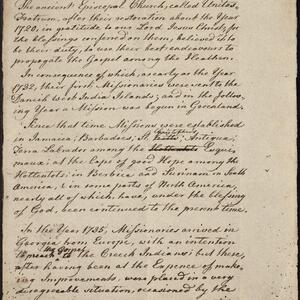 The ancient Episcopal Church, called Unitas
Fratrum, after their restoration about the Year
1720, in gratitude to our Lord Jesus Christ, for
the blessings conferred on them, believed it to
be their duty, to use their best endeavours to
propagate the Gospel among the Heathen.
In consequence of which, as early as the Year
1732, their first Missionaries were sent to the
Danish West India Islands; and in the follow-
ing Year a Mission was begun in Greenland.
Since that time Missions were established
in Jamaica, Barbadoes, St. Christophers, Antigua;
Terra Labrador among the Esqui-
maux; at the Cape of good Hope among the
Hottentots; in Berbice and Surinam in South
America, & in some parts of North America,
nearly all of which, have, under the blessing
of God, been continued to the present time.
In the Year 1735, Missionaries arrived in
Georgia from Europe, with an intention
to preach the Gospel to the Creek Indians; but these,
after having been at the Expence of mak-
ing Improvements, were placed in a very
disagreeable situation, occasioned by the